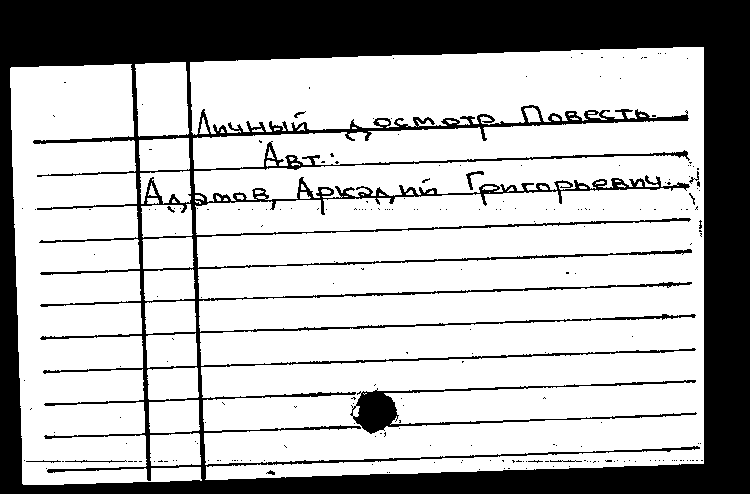 Личный досмотр. Повесть.
Авт.:
Адамов, Аркадий Григорьевич.